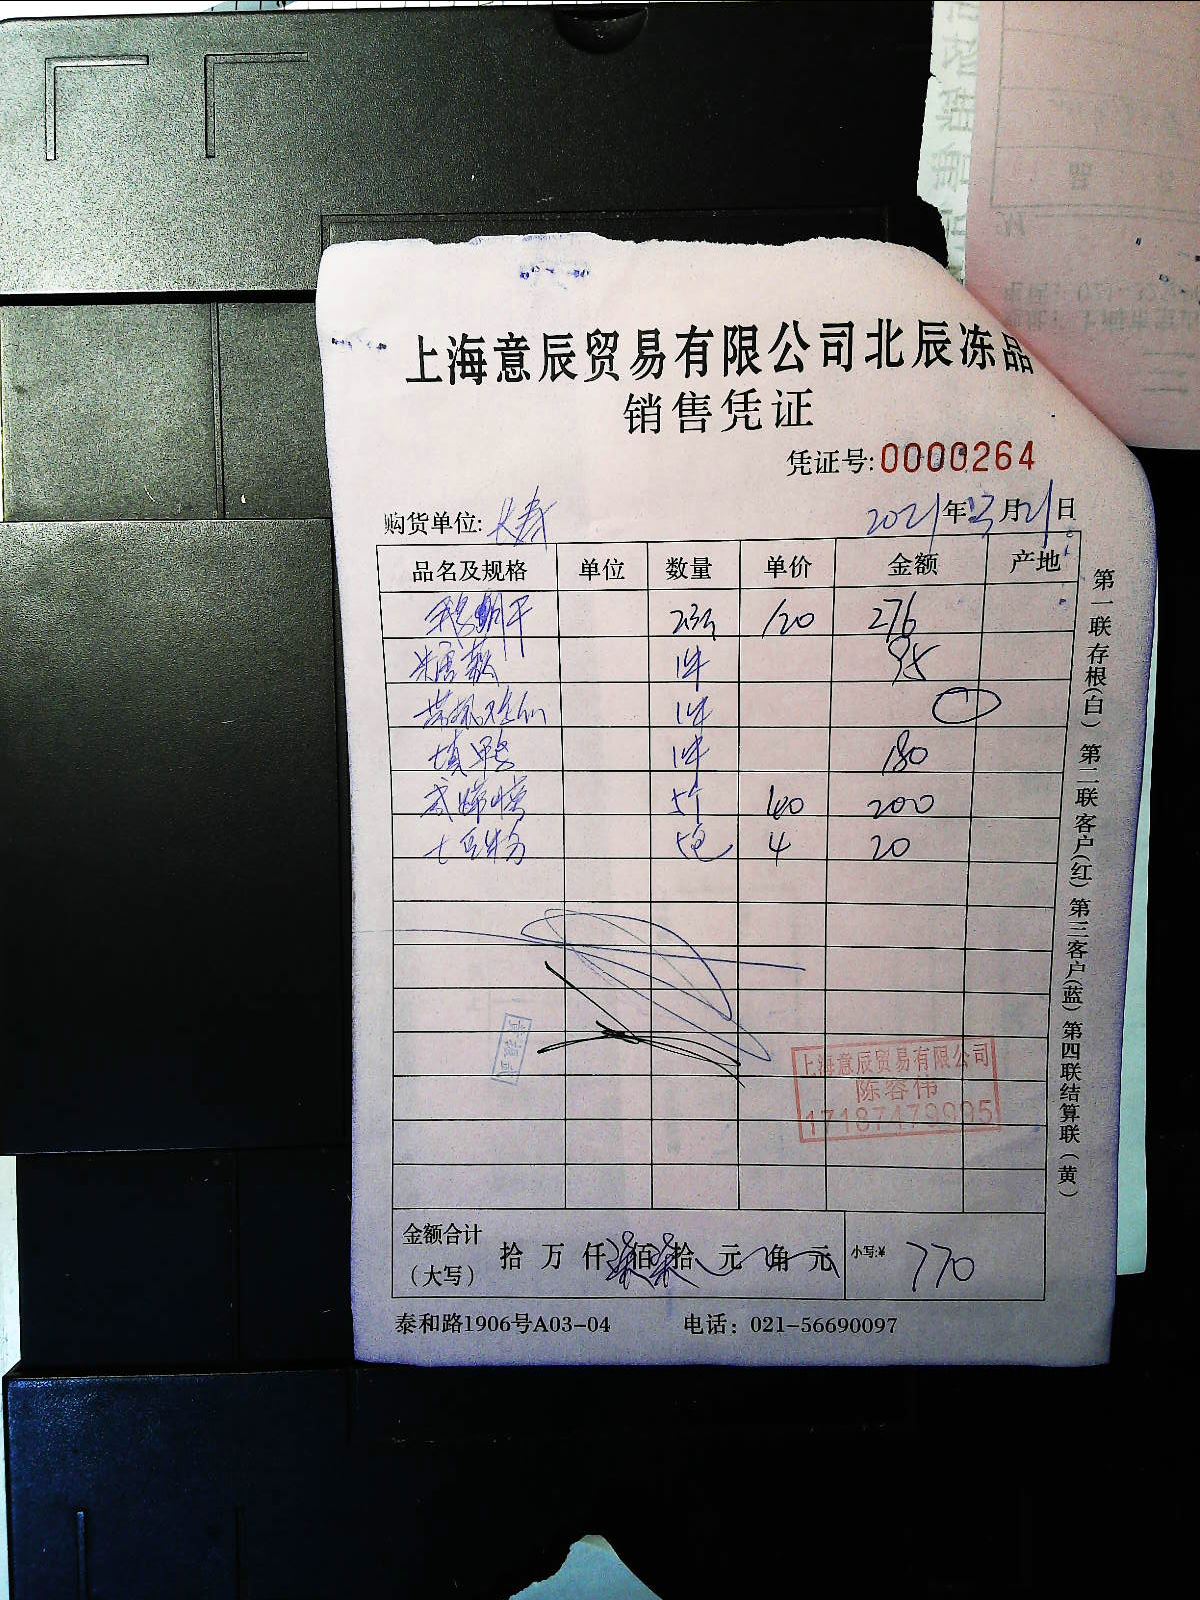 上海意辰贸易有限公司北辰冻品
销售凭证
凭证号:0000264
购货单位: 长寿 2021年 月21日
品名及规格 单位 数量 单价 金额 产地
120 276
米唐藕 1件 95
1件
填鸭 1件 180
5个 40 200
七豆粉 5包 4 20
上海意辰贸易有限公司
陈容伟
17187479995
金额合计
(大写) 拾 万 仟 柒佰 柒拾 元 角 元 小写:¥ 770
泰和路1906号A03-04 电话: 021-56690097
第一联存根(白) 第二联客户(红) 第三客户(蓝) 第四联结算联(黄)